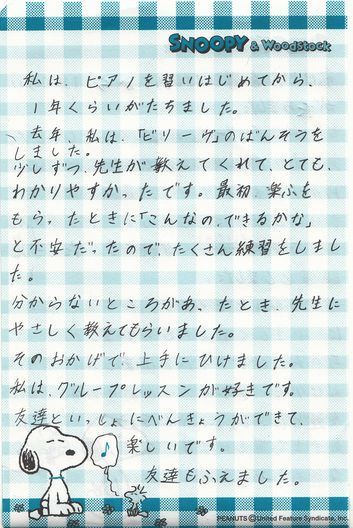 SNOOPY & Woodstock
私は、ピアノを習いはじめてから、
1年くらいがたちました。
去年、私は、「ビリーヴ」のばんそうを
しました。
少しずつ、先生が教えてくれて、とても、
わかりやすかったです。最初、楽ふを
もらったときに「こんなの、できるかな」
と不安だったので、たくさん練習をしまし
た。
分からないところがあったとき、先生に
やさしく教えてもらいました。
そのおかげで、上手にひけました。
私は、グループレッスンが好きです。
友達といっしょにべんきょうができて、
楽しいです。
友達もふえました。
PEANUTS ©United Feature Syndicate, Inc.